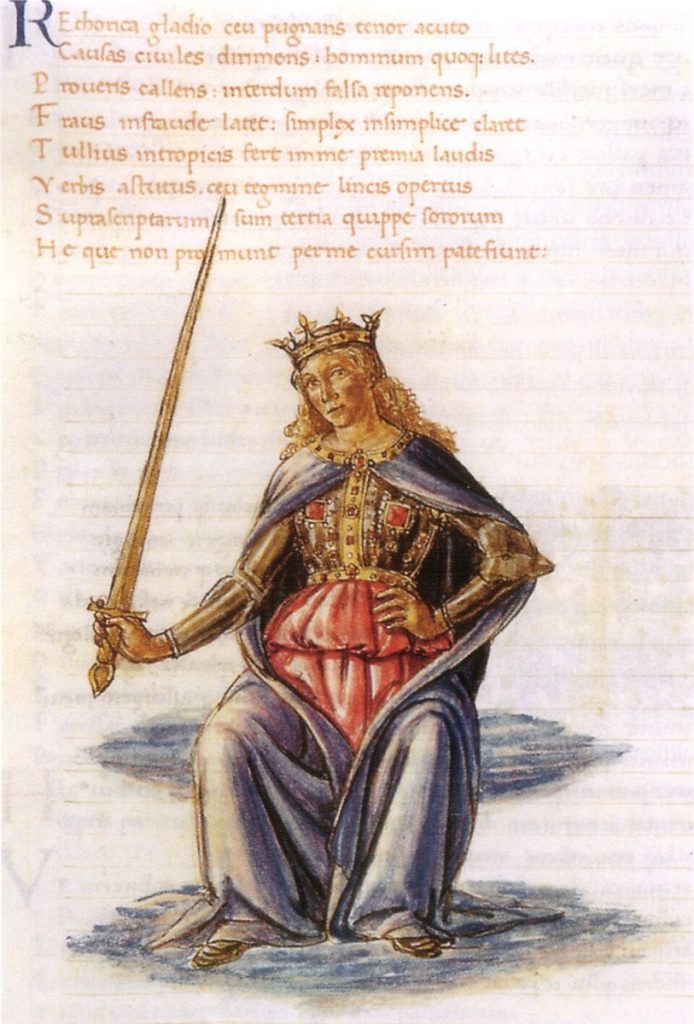 Rethorica gladio ceu pugnans tenor acuto
Causas ciuiles dirimons: hominum quoq: lites.
Proueris callens: interdum falsa reponens.
Fraus infraude latet: simplex insimplice claret
Tullius intropicis fert imme premia laudis
Verbis astutus. ceu tegmine lincis opertus
Suprascriptarum sum tertia quippe sororum
He que non promunt perme cursim patefiunt: